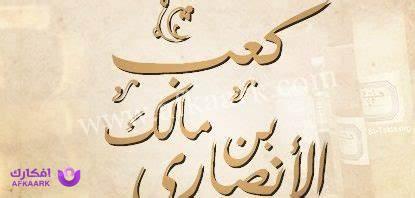 كعب
بن مالك
الأنصاري
www.afkaark.com
افكارك
AFKAARK